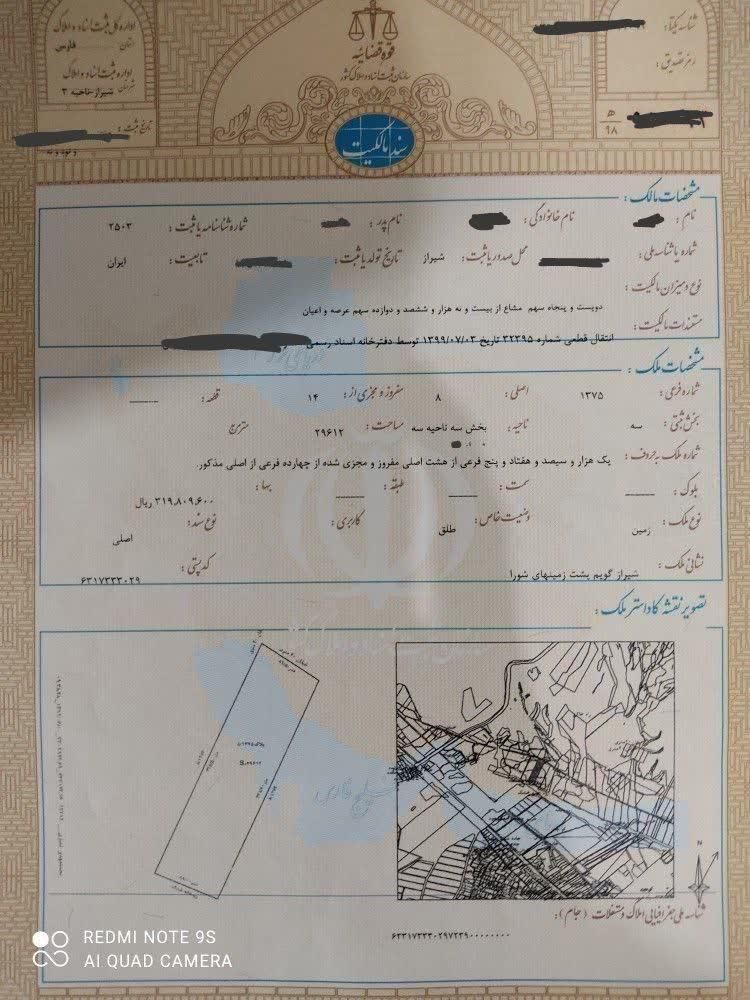 اداره کل ثبت اسناد و املاک
استان: فارس
اداره ثبت اسناد و املاک
شهرستان: شیراز-ناحیه ۳
تاریخ ثبت:
قوه قضائیه
سازمان ثبت اسناد و املاک کشور
سند مالکیت
شناسه یکتا:
رمز تصدیق:
ه
۹۸
مشخصات مالک:
نام: نام خانوادگی: نام پدر: شماره شناسنامه یا ثبت: ۲۵۰۳
شماره یا شناسه ملی: محل صدور یا ثبت: شیراز تاریخ تولد یا ثبت: تابعیت: ایران
نوع و میزان مالکیت:
دویست و پنجاه سهم مشاع از بیست و نه هزار و ششصد و دوازده سهم عرصه و اعیان
مستندات مالکیت:
انتقال قطعی شماره ۳۲۳۹۵ تاریخ ۱۳۹۹/۰۷/۰۳ توسط دفترخانه اسناد رسمی
مشخصات ملک:
شماره فرعی: ۱۳۷۵ اصلی: ۸ مفروز و مجزی از: ۱۴ قطعه: ____
بخش ثبتی: سه ناحیه: بخش سه ناحیه سه مساحت: ۲۹۶۱۲ مترمربع
شماره ملک به حروف: یک هزار و سیصد و هفتاد و پنج فرعی از هشت اصلی مفروز و مجزی شده از چهارده فرعی از اصلی مذکور.
بلوک: ____ سمت: ____ طبقه: ____ بها: ۳۱۹,۸۰۹,۶۰۰ ریال
نوع ملک: زمین وضعیت خاص: طلق کاربری: نوع سند: اصلی
نشانی ملک: شیراز گویم پشت زمینهای شورا کدپستی: ۶۳۱۷۳۳۳۰۲۹
تصویر نقشه کاداستر ملک:
N
شناسه ملی جغرافیایی املاک و مستغلات (جام):
۶۳۳۱۷۳۳۳۰۲۹۷۲۳۹۰۰۰۰۰۰۰۰
REDMI NOTE 9S
AI QUAD CAMERA